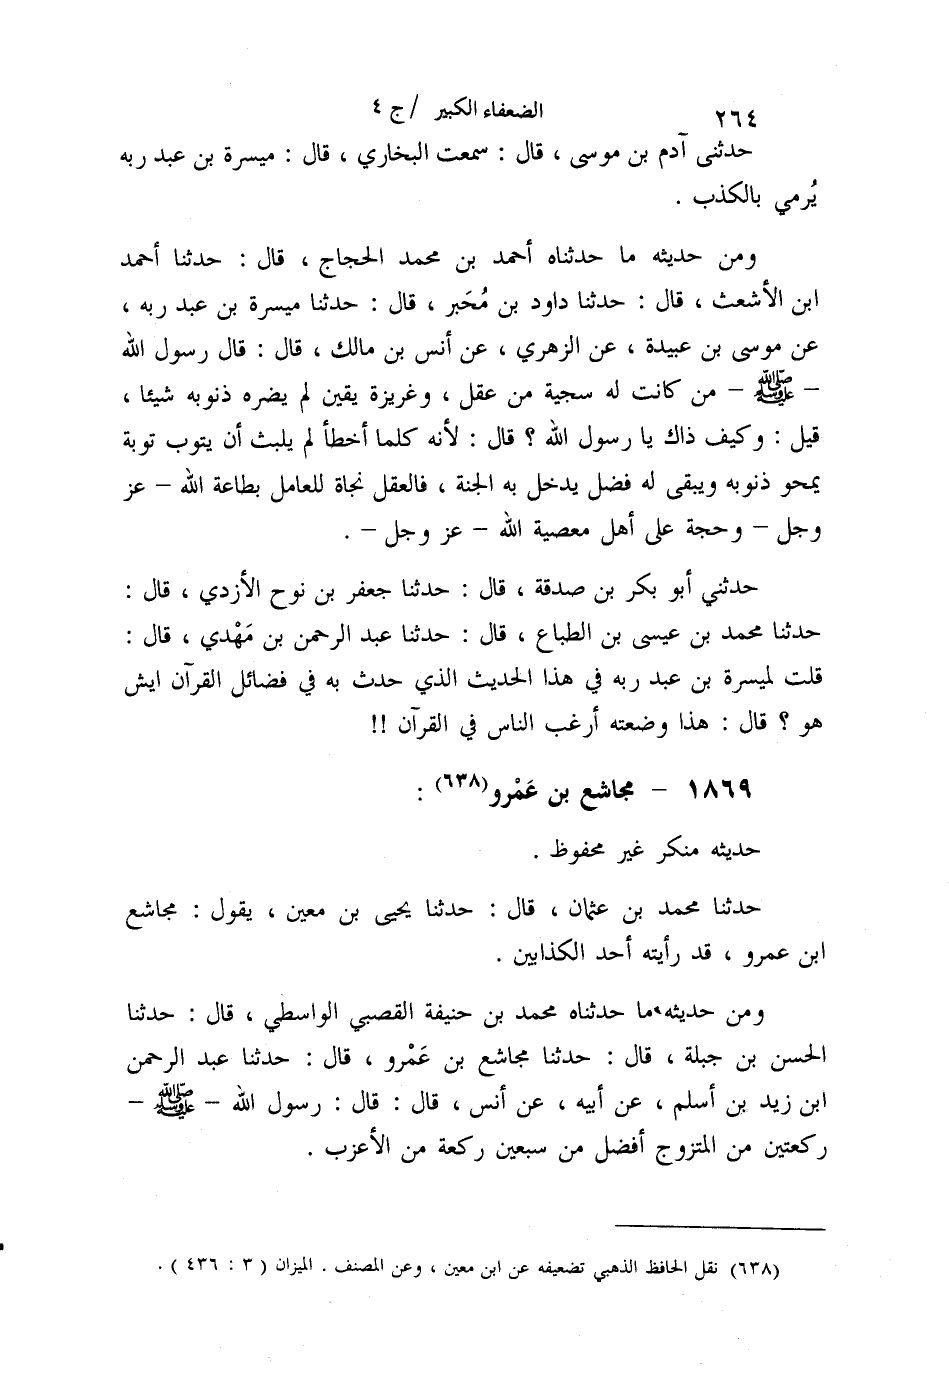 ٢٦٤ الضعفاء الكبير / ج ٤
حدثنى آدم بن موسى ، قال : سمعت البخاري ، قال : ميسرة بن عبد ربه
يُرمي بالكذب .
ومن حديثه ما حدثناه أحمد بن محمد الحجاج ، قال : حدثنا أحمد
ابن الأشعث ، قال : حدثنا داود بن مُحَبر ، قال : حدثنا ميسرة بن عبد ربه ،
عن موسى بن عبيدة ، عن الزهري ، عن أنس بن مالك ، قال : قال رسول الله
– ﷺ – من كانت له سجية من عقل ، وغريزة يقين لم يضره ذنوبه شيئا ،
قيل : وكيف ذاك يا رسول الله ؟ قال : لأنه كلما أخطأ لم يلبث أن يتوب توبة
يمحو ذنوبه ويبقى له فضل يدخل به الجنة ، فالعقل نجاة للعامل بطاعة الله – عز
وجل – وحجة على أهل معصية الله – عز وجل – .
حدثني أبو بكر بن صدقة ، قال : حدثنا جعفر بن نوح الأزدي ، قال :
حدثنا محمد بن عيسى بن الطباع ، قال : حدثنا عبد الرحمن بن مَهْدي ، قال :
قلت لميسرة بن عبد ربه في هذا الحديث الذي حدث به في فضائل القرآن ايش
هو ؟ قال : هذا وضعته أرغب الناس في القرآن !!
١٨٦٩ – مجاشع بن عَمْرو(٦٣٨) :
حديثه منكر غير محفوظ .
حدثنا محمد بن عثمان ، قال : حدثنا يحيى بن معين ، يقول : مجاشع
ابن عمرو ، قد رأيته أحد الكذابين .
ومن حديثه ما حدثناه محمد بن حنيفة القصبي الواسطي ، قال : حدثنا
الحسن بن جبلة ، قال : حدثنا مجاشع بن عَمْرو ، قال : حدثنا عبد الرحمن
ابن زيد بن أسلم ، عن أبيه ، عن أنس ، قال : قال : رسول الله – ﷺ –
ركعتين من المتزوج أفضل من سبعين ركعة من الأعزب .
(٦٣٨) نقل الحافظ الذهبي تضعيفه عن ابن معين ، وعن المصنف . الميزان ( ٣ : ٤٣٦ ) .